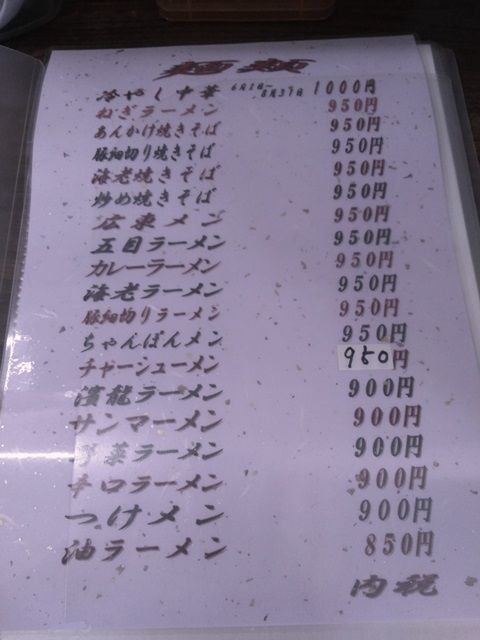 麺類
冷やし中華 6月1日～8月31日 1000円
ねぎラーメン 950円
あんかけ焼きそば 950円
豚細切り焼きそば 950円
海老焼きそば 950円
炒め焼きそば 950円
広東メン 950円
五目ラーメン 950円
カレーラーメン 950円
海老ラーメン 950円
豚細切りラーメン 950円
ちゃんぽんメン 950円
チャーシューメン 950円
濱龍ラーメン 900円
サンマーメン 900円
菜ラーメン 900円
辛口ラーメン 900円
つけメン 900円
油ラーメン 850円
内税